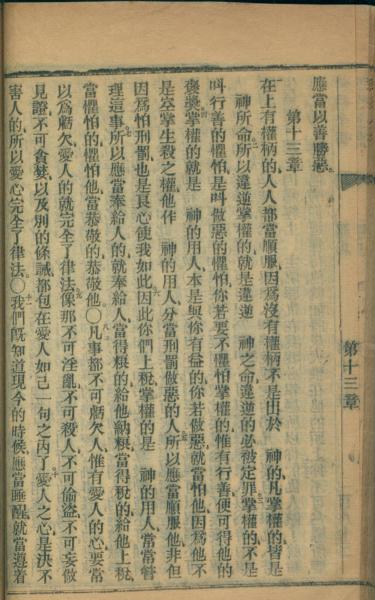 應當以善勝惡
第十三章
在上有權柄的人人都當順服因爲沒有權柄不是出於 神的凡掌權的皆是
神所命所以違逆掌權的就是違逆 神之命違逆的必被定罪掌權的不是
叫行善的懼怕是叫做惡的懼怕你若要不懼怕掌權的惟有行善便可得他的
褒獎掌權的就是 神的用人本是與你有益的你若做惡就當怕他因爲他不
是空掌生殺之權他作 神的用人分當刑罰做惡的人所以應當順服他非但
因爲怕刑罰也是良心使我如此因此你們上稅掌權的是 神的用人常常管
理這事所以應當奉給人的就奉給人當得糧的給他納糧當得稅的給他上稅
當懼怕的懼怕他當恭敬的恭敬他〇凡事都不可虧欠人惟有愛人的心要當
以爲虧欠愛人的就完全了律法像那不可淫亂不可殺人不可偷盜不可妄做
見證不可貪婪以及別的條誡都包在愛人如己一句之內了愛人之心是決不
害人的所以愛心完全了律法〇我們既知道現今的時候應當睡醒就當遵着
第十三章